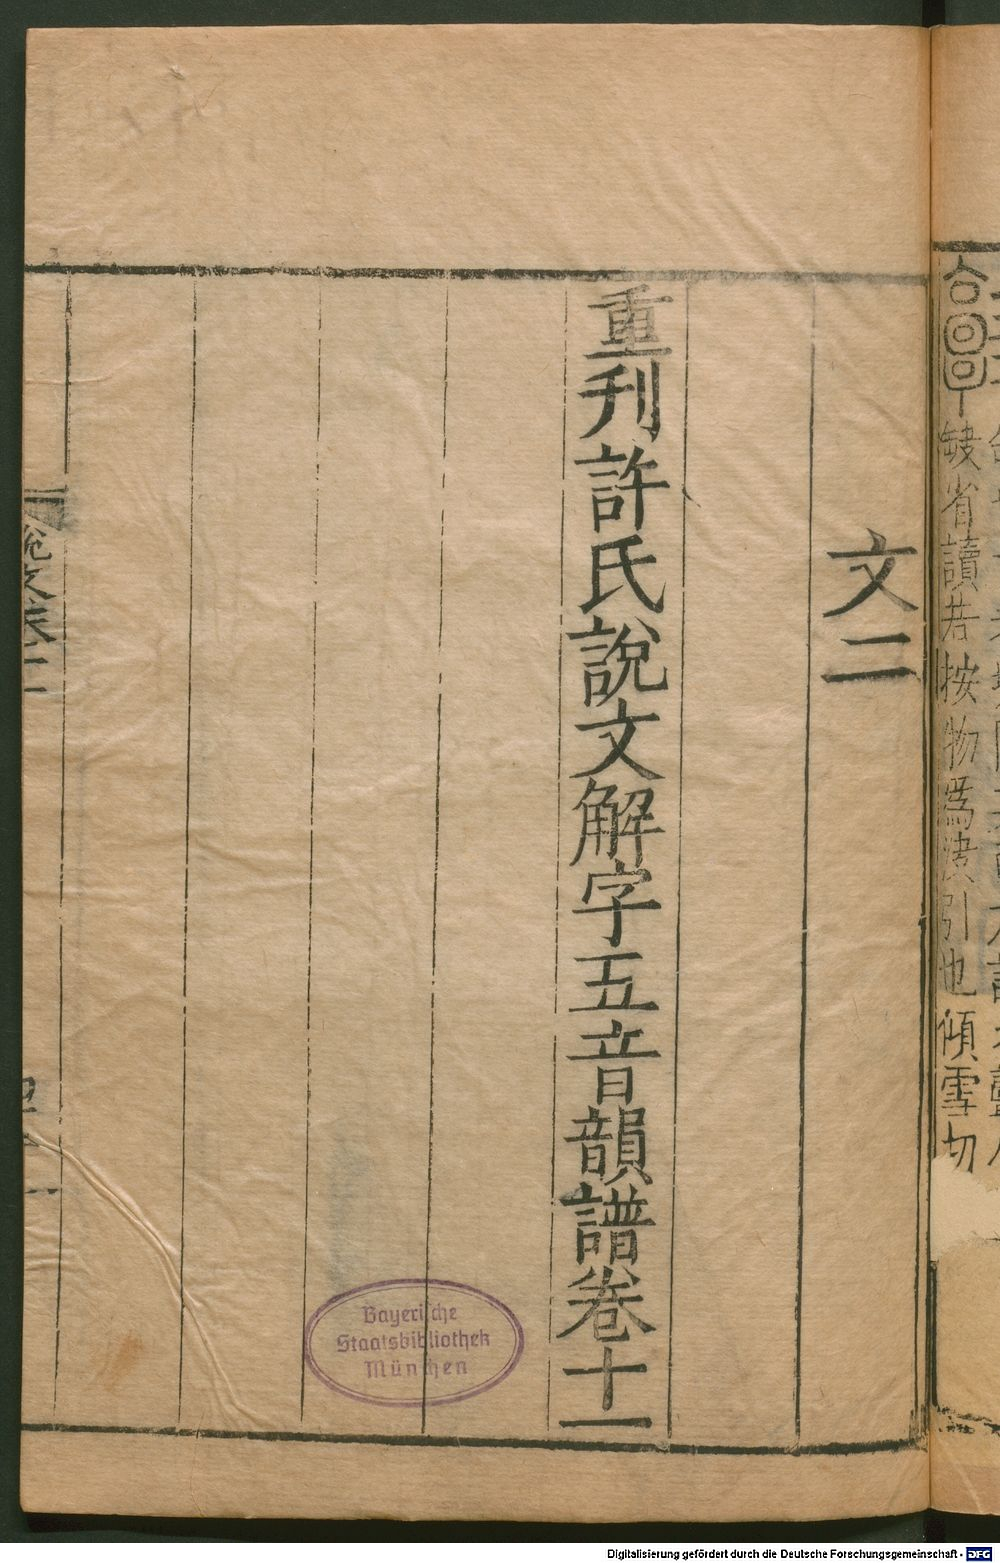 缺省讀若按物爲決引也傾雪切
文二
重刊許氏說文解字五音韻譜卷十一
Bayerische
Staatsbibliothek
München
Digitalisierung gefördert durch die Deutsche Forschungsgemeinschaft - DFG